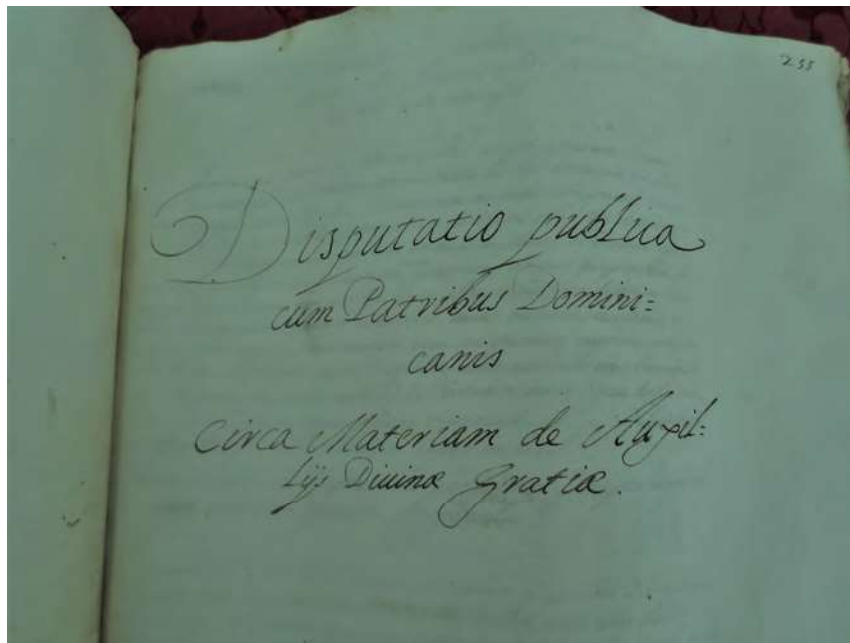 255
Disputatio publica
cum Patribus Domini=
canis
Circa Materiam de Auxil=
lijs Diuinæ Gratiæ.